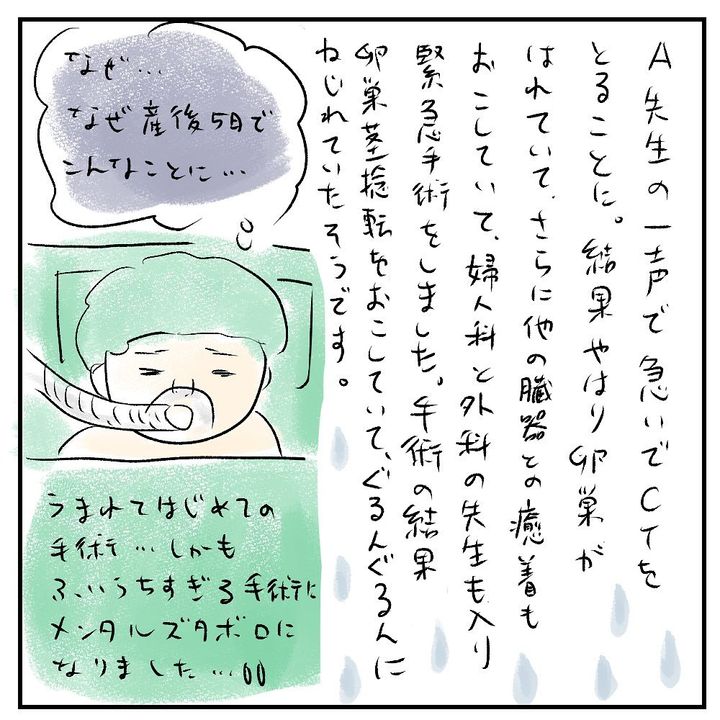 A先生の一声で急いでCTを
とることに。結果やはり卵巣が
はれていて、さらに他の臓器との癒着も
おこしていて、婦人科と外科の先生も入り
緊急手術をしました。手術の結果
卵巣茎捻転をおこしていて、ぐるんぐるんに
ねじれていたそうです。
なぜ…
なぜ産後5日で
こんなことに…
うまれてはじめての
手術…しかも
ふいうちすぎる手術に
メンタルズタボロに
なりました…